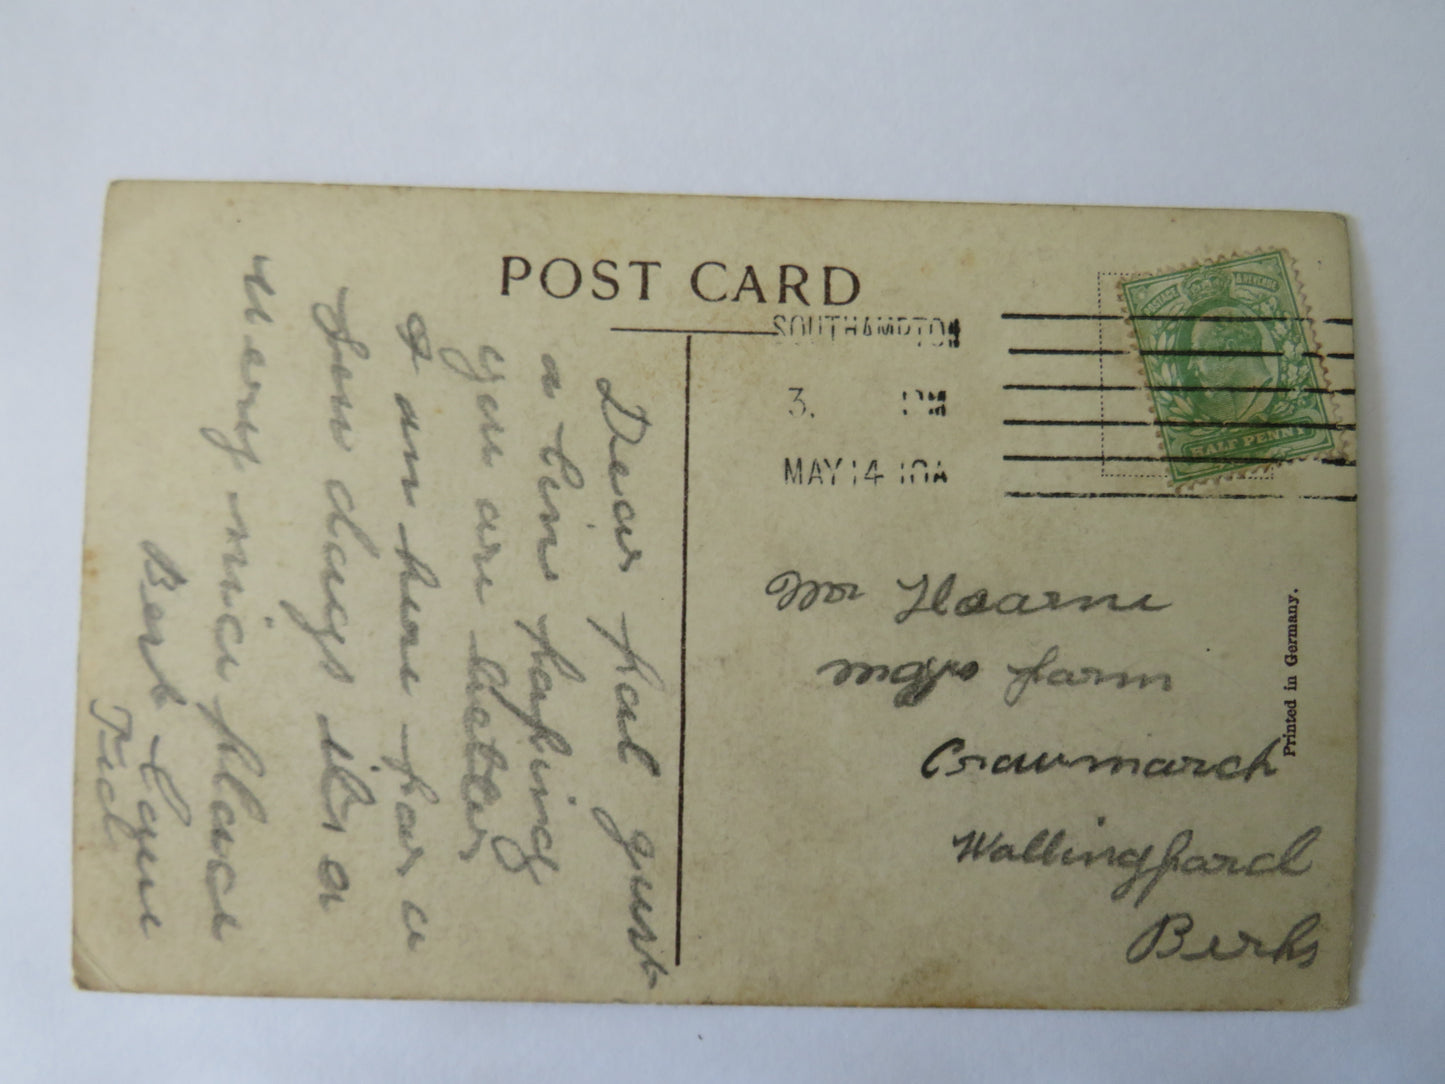 POST CARD
SOUTHAMPTON
3. PM
MAY 14 10A
POSTAGE & REVENUE
HALF PENNY
Dear pal just
a line hoping
you are better
I am here for a
few days its a
very nice place
Best
Mr Hearne
farm
Crowmarch
Wallingford
Berks
Printed in Germany.